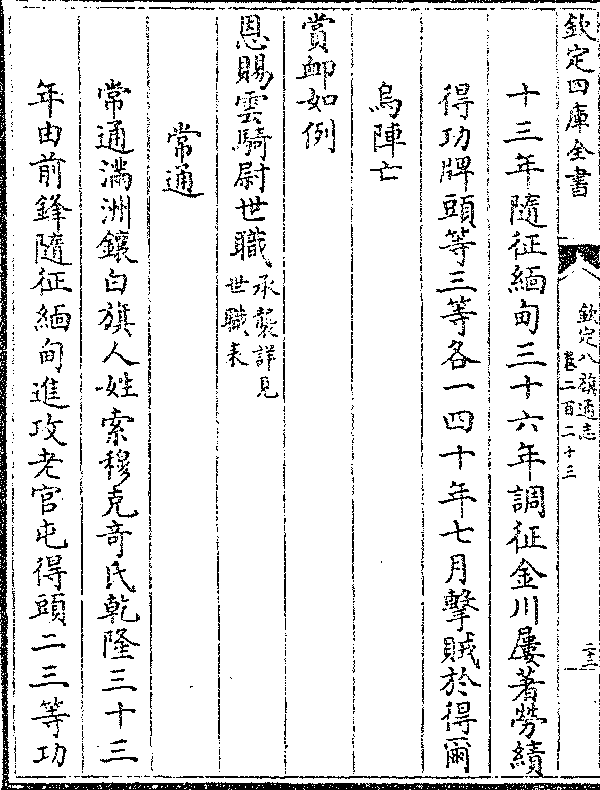 欽定四庫全書
欽定八旗通志
卷二百二十三
二十三
十三年隨征緬甸三十六年調征金川屢著勞績
得功牌頭等三等各一四十年七月擊賊於得爾
烏陣亡
賞卹如例
恩賜雲騎尉世職承襲詳見
世職表
常通
常通滿洲鑲白旗人姓索穆克竒氏乾隆三十三
年由前鋒隨征緬甸進攻老官屯得頭二三等功